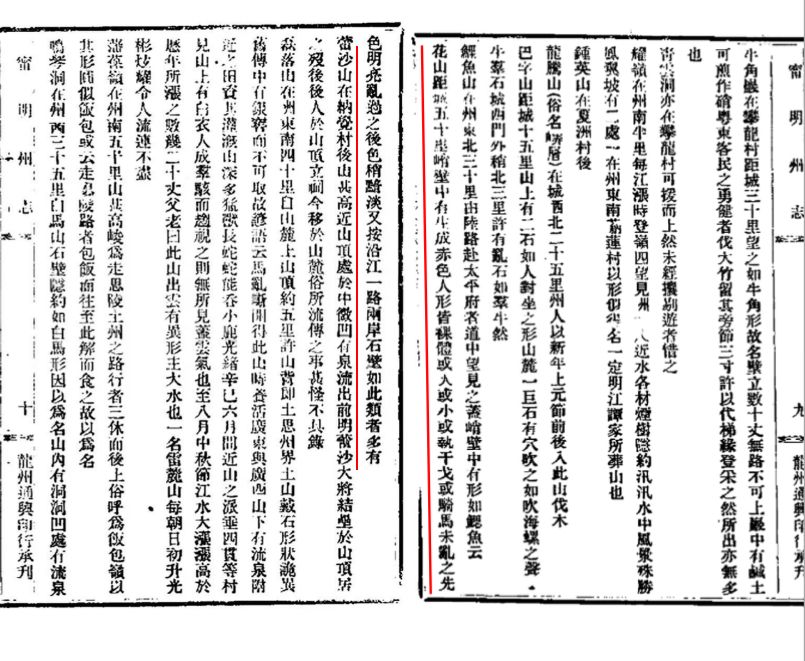 牛角巖在攀龍村距城三十里望之如牛角形故名壁立數十丈無路不可上巖中有鹹土
可煎作硝粵東客民之勇健者伐大竹留其旁節三寸許以代梯緣登采之然所出亦無多
也
青雲洞亦在攀龍村可援而上然未經攘剔遊者惜之
耀嶺在州南半里每江漲時登嶺四望見州人近水各村煙樹隱約汎汎水中風景殊勝
鳳翼坡有二處一在州東南蓮村以形似得名一定明江譚家所葬山也
鍾英山在夏洲村後
龍騰山(俗名)在城西北二十五里州人以新年上元節前後入此山伐木
巴字山距城十五里山上有二石如人對坐之形山麓一巨石有穴吹之如吹海螺之聲
牛羣石城西門外稍北三里許有亂石如羣牛然
鰓魚山在州東北三十里由陸路赴太平府者道中望見之蓋峭壁中有形如鰓魚云
花山距城五十里峭壁中有生成赤色人形皆裸體或大或小或執干戈或騎馬未亂之先
甯明州志
九
龍州通興印行承刊
色明亮亂過之後色稍黯淡又按沿江一路兩岸石壁如此類者多有
蕾沙山在納覺村後山甚高近山頂處於中微凹有泉流出前明蕾沙大將結壘於山頂居
之歿後後人於山頂立祠今移於山麓俗所流傳之事甚怪不具錄
磊落山在州東南四十里自山麓上山頂約五里許山背即土思州界土山戴石形狀詭異
舊傳中有銀礦而不可取故諺語云馬亂嘶開得此山時養活廣東與廣西山下有流泉附
近之田資其灌溉山深多猛獸長蛇蛇能吞小鹿光緒辛巳六月間近山之派垂四貫等村
見山上有白衣人成羣駭而趨視之則無所見蓋雲氣也至八月中秋節江水大漲漲高於
歷年所漲之數幾二十丈父老曰此山出雲有異形主大水也一名雷麓山每朝日初升光
彩炫耀令人流連不盡
落葆嶺在州南五十里山甚高峻爲走思陵土州之路行者三休而後上俗呼爲飯包嶺以
其形圓似飯包或云走思陵路者包飯而往至此解而食之故以爲名
鳴琴洞在州西三十五里白馬山石壁隱約如白馬形因以爲名山內有洞洞凹處有流泉
甯明州志
十
龍州通興印行承刊